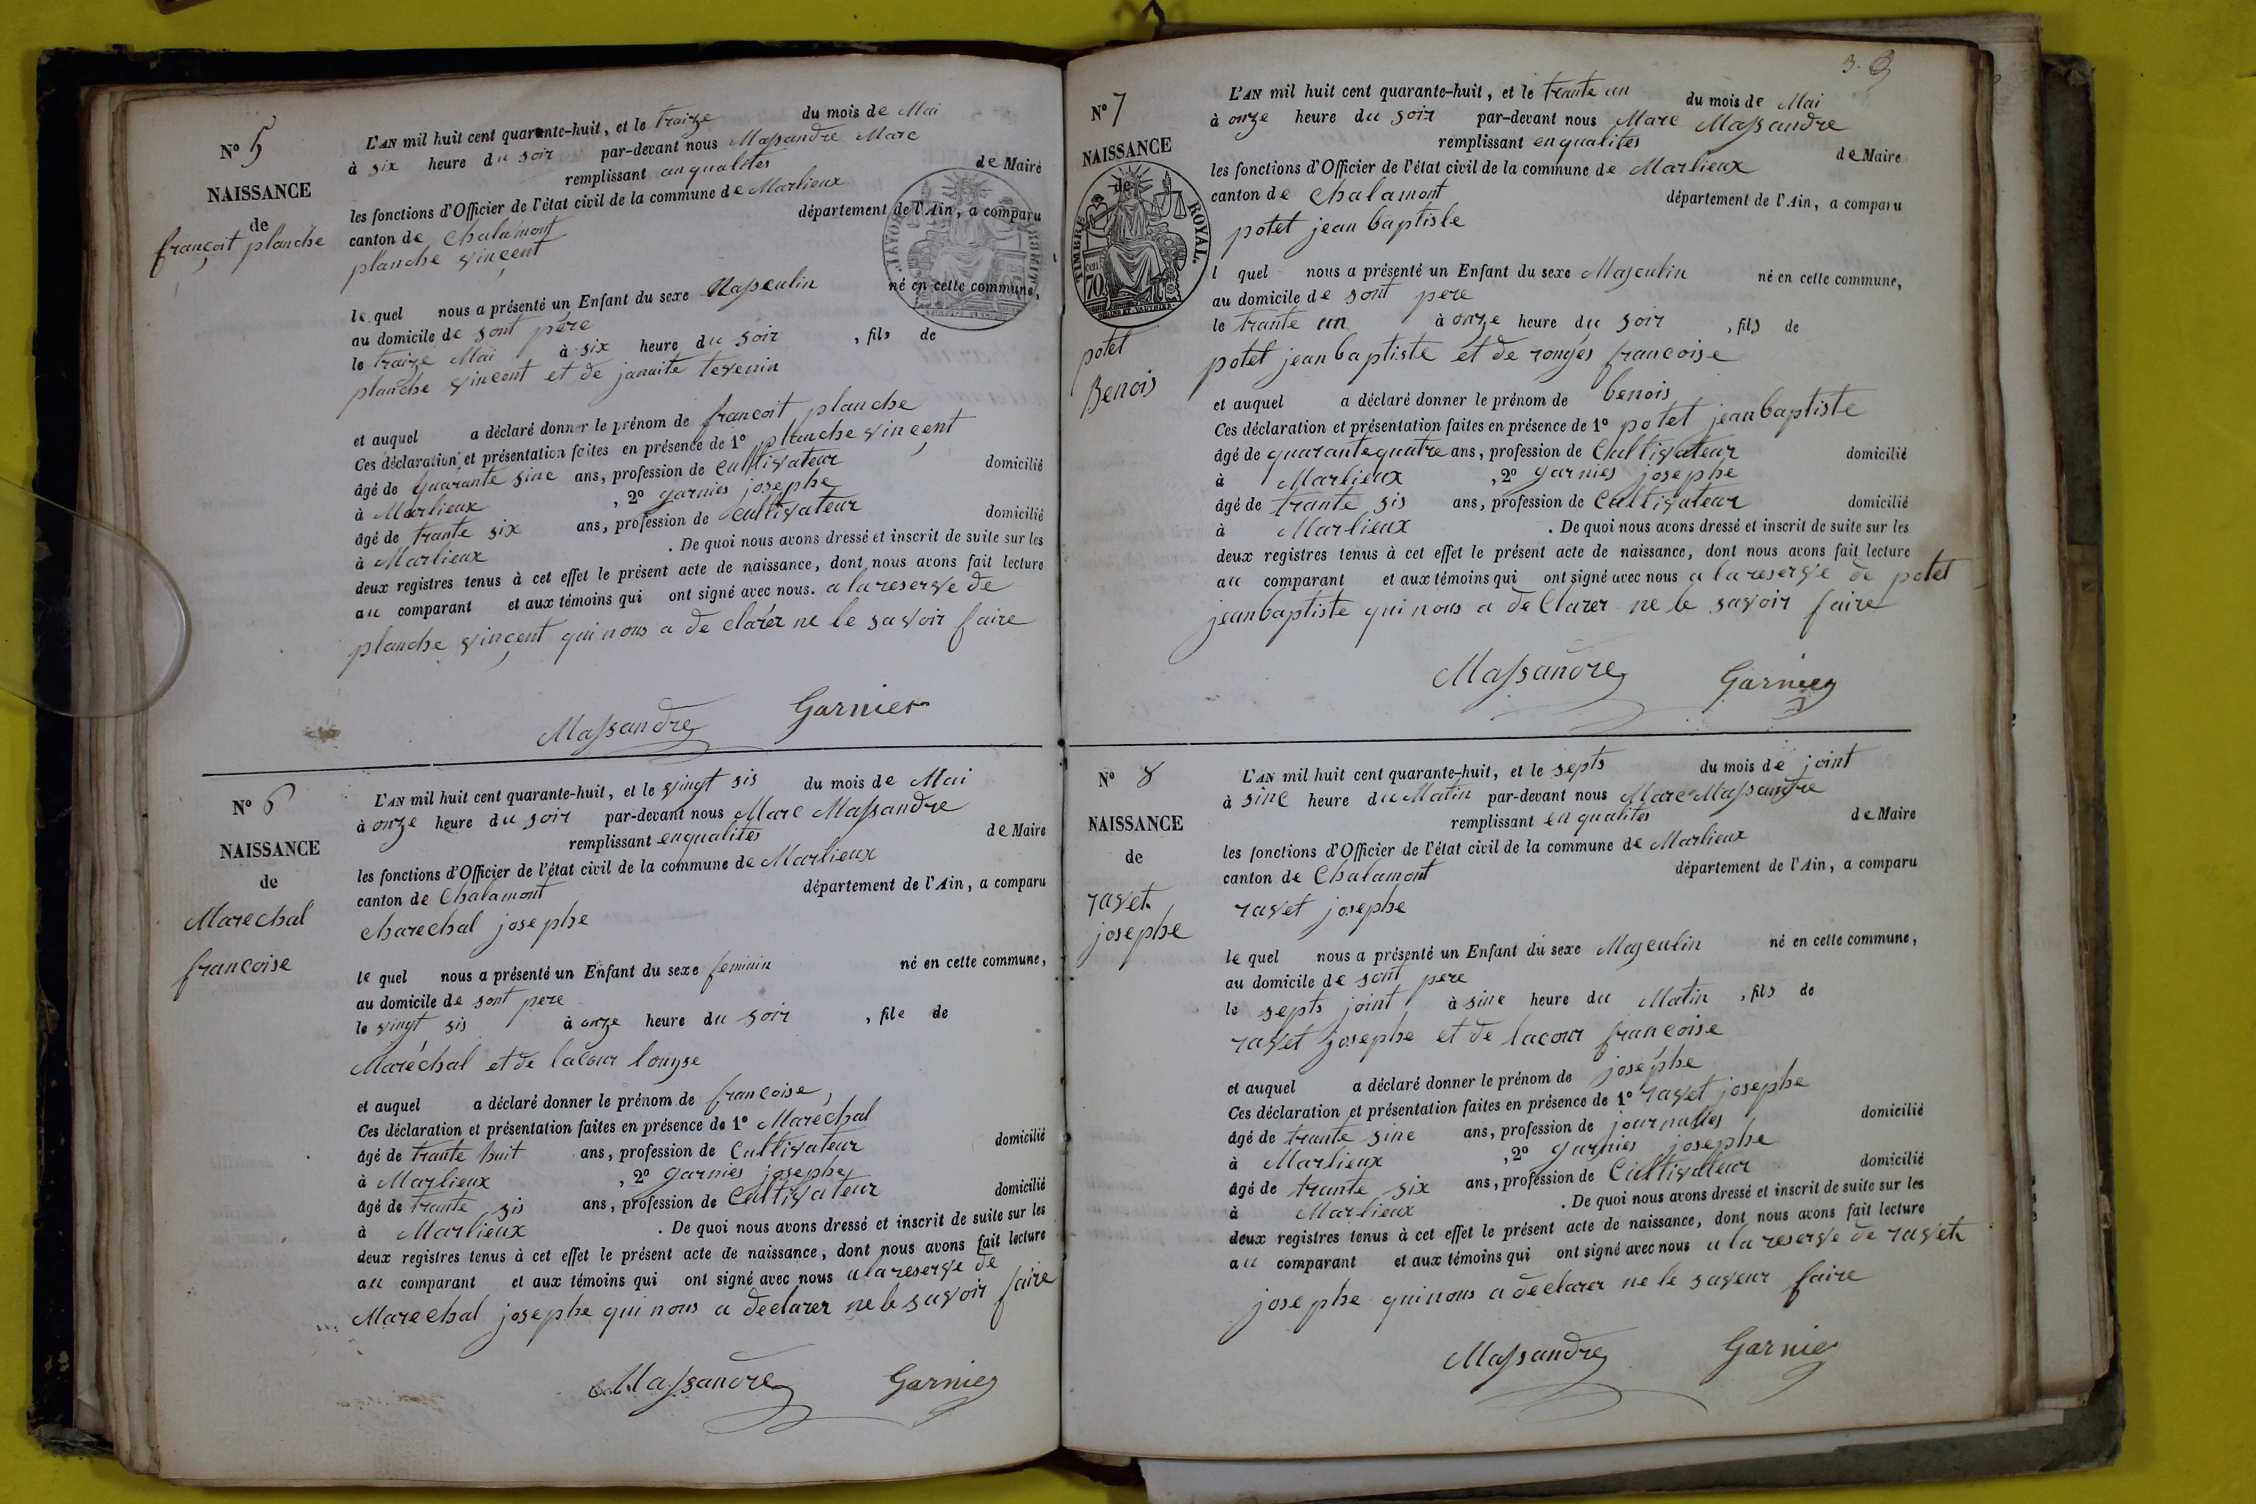 N° 5
NAISSANCE
de
françoit planche
L'AN mil huit cent quarante-huit, et le traize du mois de Mai
à six heure du soir par-devant nous Massandre Marc
remplissant anqualites de Maire
les fonctions d'Officier de l'état civil de la commune de Marlieux
canton de Chalamont département de l'Ain, a comparu
planche vinçent
le quel nous a présenté un Enfant du sexe Masculin né en cette commune,
au domicile de sont père
le traize Mai à six heure du soir , fils de
planche vincent et de janaite tevenin
et auquel a déclaré donner le prénom de francoit planche
Ces déclaration et présentation faites en présence de 1° planche vinçent
âgé de quarante sinc ans, profession de cultivateur domicilié
à Marlieux , 2° garnies josephe
âgé de trante six ans, profession de cultivateur domicilié
à Marlieux . De quoi nous avons dressé et inscrit de suite sur les
deux registres tenus à cet effet le présent acte de naissance, dont nous avons fait lecture
au comparant et aux témoins qui ont signé avec nous. a la reserve de
planche vinçent qui nous a de clarér ne le savoir faire
Massandre Garnier
N° 6
NAISSANCE
de
Marechal
francoise
L'AN mil huit cent quarante-huit, et le vingt sis du mois de Mai
à onze heure du soir par-devant nous Marc Massandre
remplissant enqualites de Maire
les fonctions d'Officier de l'état civil de la commune de Marlieux
canton de Chalamont département de l'Ain, a comparu
charechal josephe
le quel nous a présenté un Enfant du sexe feminin né en cette commune,
au domicile de sont pere
le vingt sis à onze heure du soir , file de
Maréchal et de lacour louyse
et auquel a déclaré donner le prénom de francoise,
Ces déclaration et présentation faites en présence de 1° Maréchal
âgé de trante huit ans, profession de Cultivateur domicilié
à Marlieux , 2° garnies josephe
âgé de trante sis ans, profession de Cultivateur domicilié
à Marlieux . De quoi nous avons dressé et inscrit de suite sur les
deux registres tenus à cet effet le présent acte de naissance, dont nous avons fait lecture
au comparant et aux témoins qui ont signé avec nous a la reserve de
Marechal josephe qui nous a declarer ne le savoir faire
Massandre Garnier
3.
N° 7
NAISSANCE
de
TIMBRE ROYAL.
70
potet
Benois
L'AN mil huit cent quarante-huit, et le trante un du mois de Mai
à onze heure du soir par-devant nous Marc Massandre
remplissant enqualites de Maire
les fonctions d'Officier de l'état civil de la commune de Marlieux
canton de Chalamont département de l'Ain, a comparu
potet jean baptiste
l quel nous a présenté un Enfant du sexe Masculin né en cette commune,
au domicile de sont pere
le trante un à onze heure du soir , fils de
potet jean baptiste et de ronges francoise
et auquel a déclaré donner le prénom de benois
Ces déclaration et présentation faites en présence de 1° potet jeanbaptiste
âgé de quarantequatre ans, profession de Cultivateur domicilié
à Marlieux , 2° garnies josephe
âgé de trante sis ans, profession de Cultivateur domicilié
à Marlieux . De quoi nous avons dressé et inscrit de suite sur les
deux registres tenus à cet effet le présent acte de naissance, dont nous avons fait lecture
au comparant et aux témoins qui ont signé avec nous a la reserve de potet
jeanbaptiste qui nous a de Clarer ne le savoir faire
Massandre Garnier
N° 8
NAISSANCE
de
ravet
josephe
L'AN mil huit cent quarante-huit, et le septs du mois de joint
à sinc heure du Matin par-devant nous Marc Massandre
remplissant en qualites de Maire
les fonctions d'Officier de l'état civil de la commune de Marlieux
canton de Chalamont département de l'Ain, a comparu
ravet josephe
le quel nous a présenté un Enfant du sexe Masculin né en cette commune,
au domicile de sont pere
le septs joint à sinc heure du Matin , fils de
ravet josephe et de lacour francoise
et auquel a déclaré donner le prénom de joséphe
Ces déclaration et présentation faites en présence de 1° ravet josephe
âgé de trante sinc ans, profession de journalies domicilié
à Marlieux , 2° garnies josephe
âgé de trante six ans, profession de Cultivateur domicilié
à Marlieux . De quoi nous avons dressé et inscrit de suite sur les
deux registres tenus à cet effet le présent acte de naissance, dont nous avons fait lecture
au comparant et aux témoins qui ont signé avec nous a la reserve de ravet
josephe qui nous a declarer ne le saveur faire
Massandre Garnier